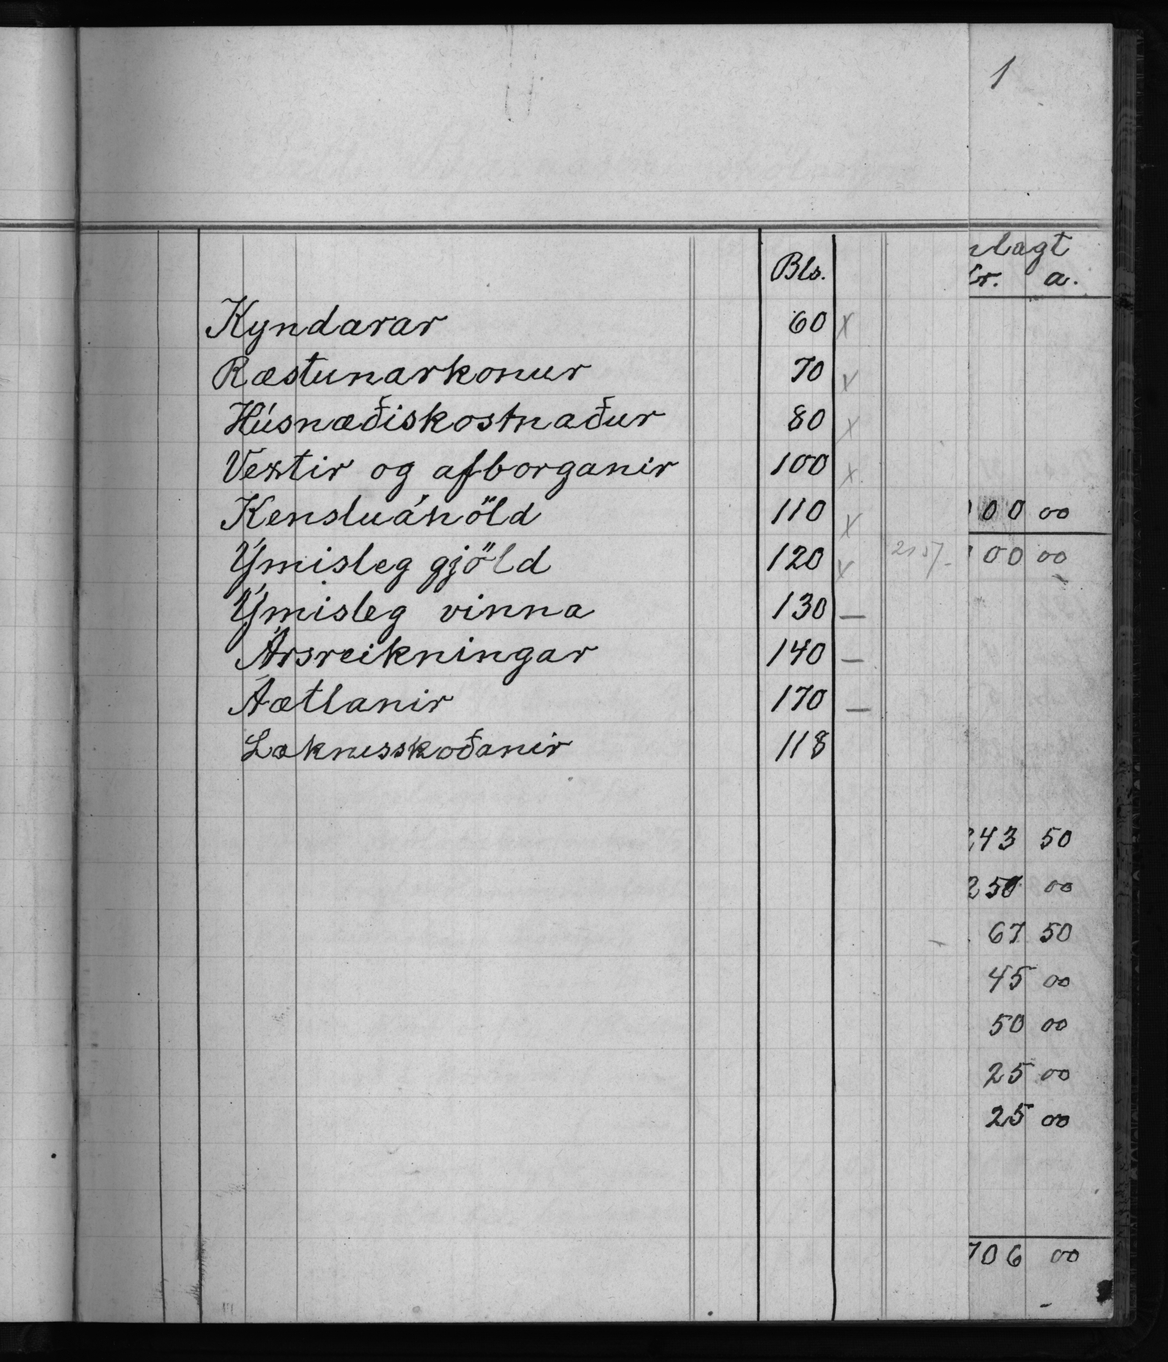 1
Bls.
Kyndarar 60 x
Ræstunarkonur 70 x
Húsnæðiskostnaður 80 x
Vextir og afborganir 100 x
Kensluáhöld 110 x
Ýmisleg gjöld 120 x
Ýmisleg vinna 130 —
Ársreikningar 140 —
Áætlanir 170 —
Læknisskoðanir 118
lagt
kr. a.
00 00
00 00
243 50
250 00
67 50
45 00
50 00
25 00
25 00
706 00